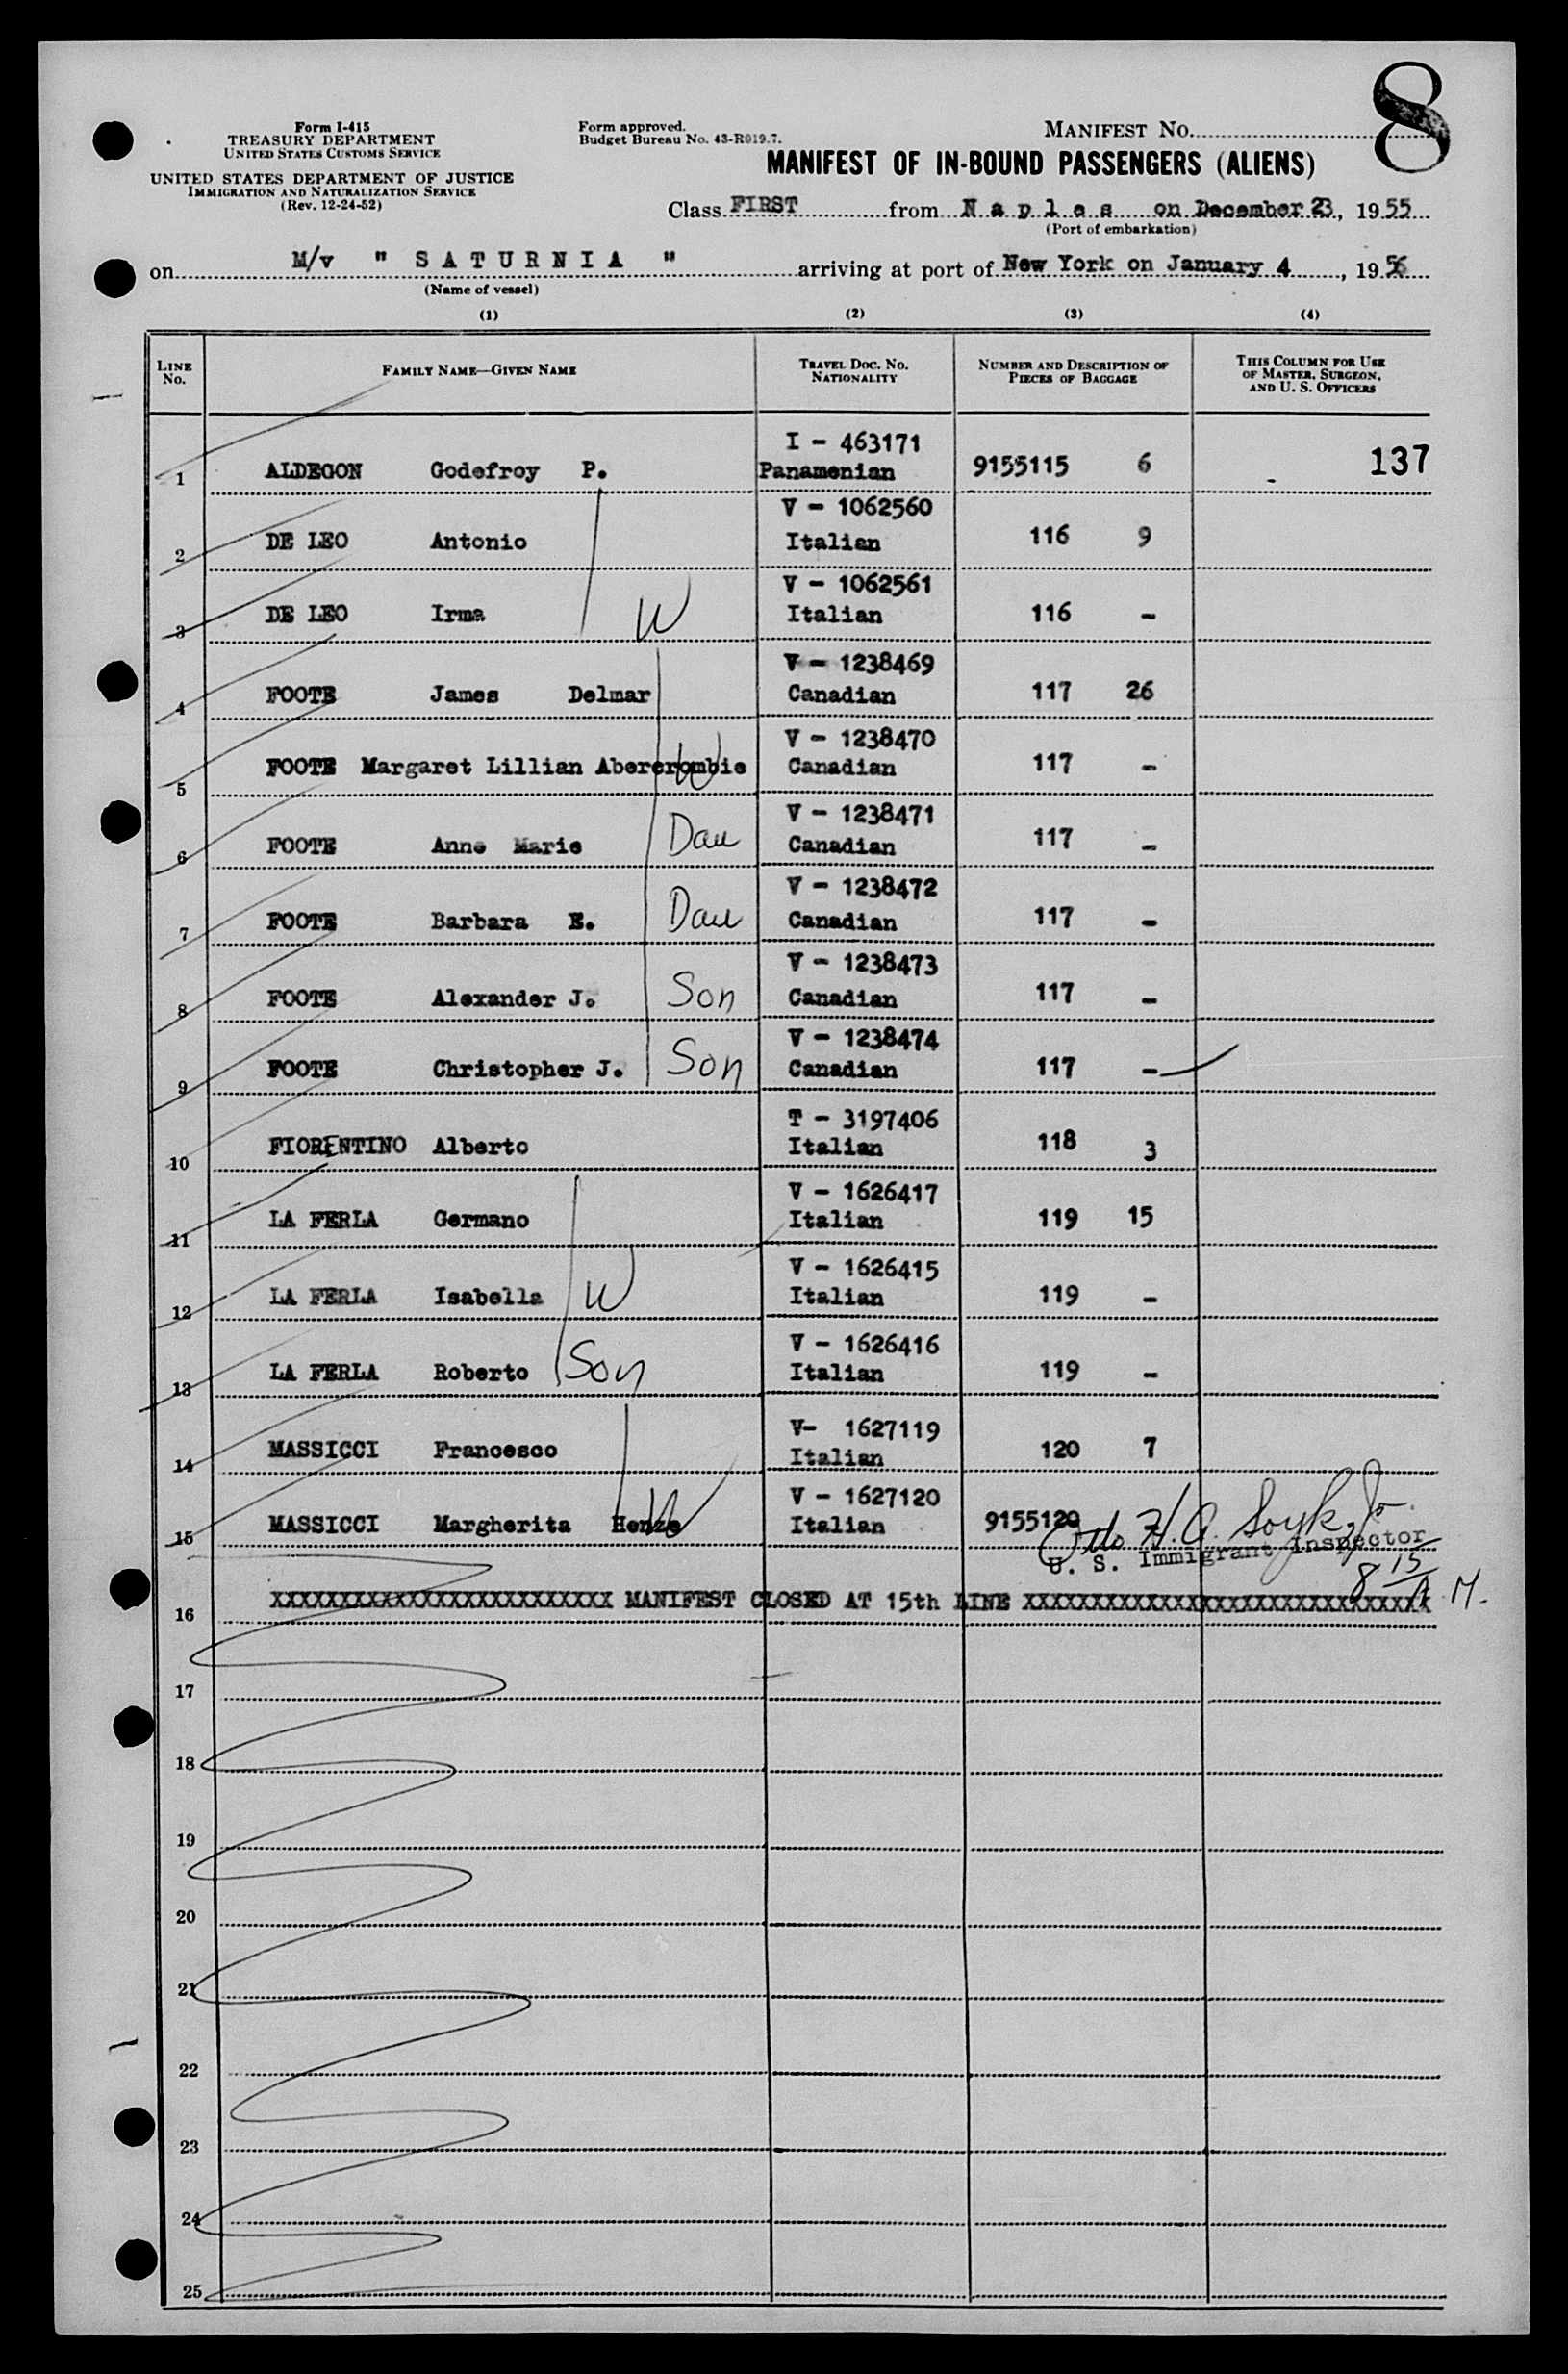 8
Form I-415
TREASURY DEPARTMENT
UNITED STATES CUSTOMS SERVICE
UNITED STATES DEPARTMENT OF JUSTICE
IMMIGRATION AND NATURALIZATION SERVICE
(Rev. 12-24-52)
Form approved.
Budget Bureau No. 43-R019.7.
MANIFEST NO.
MANIFEST OF IN-BOUND PASSENGERS (ALIENS)
Class FIRST from N a p l e s on December 23, 1955
(Port of embarkation)
on M/v " S A T U R N I A " arriving at port of New York on January 4, 1956
(Name of vessel)
(1) (2) (3) (4)
LINE NO. FAMILY NAME—GIVEN NAME TRAVEL DOC. NO. NATIONALITY NUMBER AND DESCRIPTION OF PIECES OF BAGGAGE THIS COLUMN FOR USE OF MASTER, SURGEON, AND U. S. OFFICERS
I - 463171
1 ALDEGON Godefroy P. Panamenian 9155115 6 137
V - 1062560
2 DE LEO Antonio Italian 116 9
V - 1062561
3 DE LEO Irma W Italian 116 -
V - 1238469
4 FOOTE James Delmar Canadian 117 26
V - 1238470
5 FOOTE Margaret Lillian Abercrombie W Canadian 117 -
V - 1238471
6 FOOTE Anne Marie Dau Canadian 117 -
V - 1238472
7 FOOTE Barbara E. Dau Canadian 117 -
V - 1238473
8 FOOTE Alexander J. Son Canadian 117 -
V - 1238474
9 FOOTE Christopher J. Son Canadian 117 -
T - 3197406
10 FIORENTINO Alberto Italian 118 3
V - 1626417
11 LA FERLA Germano Italian 119 15
V - 1626415
12 LA FERLA Isabella W Italian 119 -
V - 1626416
13 LA FERLA Roberto Son Italian 119 -
V- 1627119
14 MASSICCI Francesco Italian 120 7
V - 1627120
15 MASSICCI Margherita Henze W Italian 9155120
Otto H.A. Jr.
U. S. Immigrant Inspector
8 15/A.M.
16 XXXXXXXXXXXXXXXXXXXXXXXXX MANIFEST CLOSED AT 15th LINE XXXXXXXXXXXXXXXXXXXXXXXXXXXXXX
17
18
19
20
21
22
23
24
25